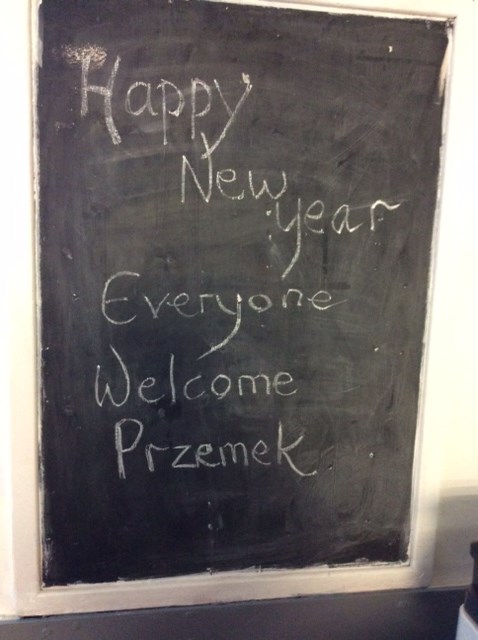 Happy
New
year
Everyone
Welcome
Przemek